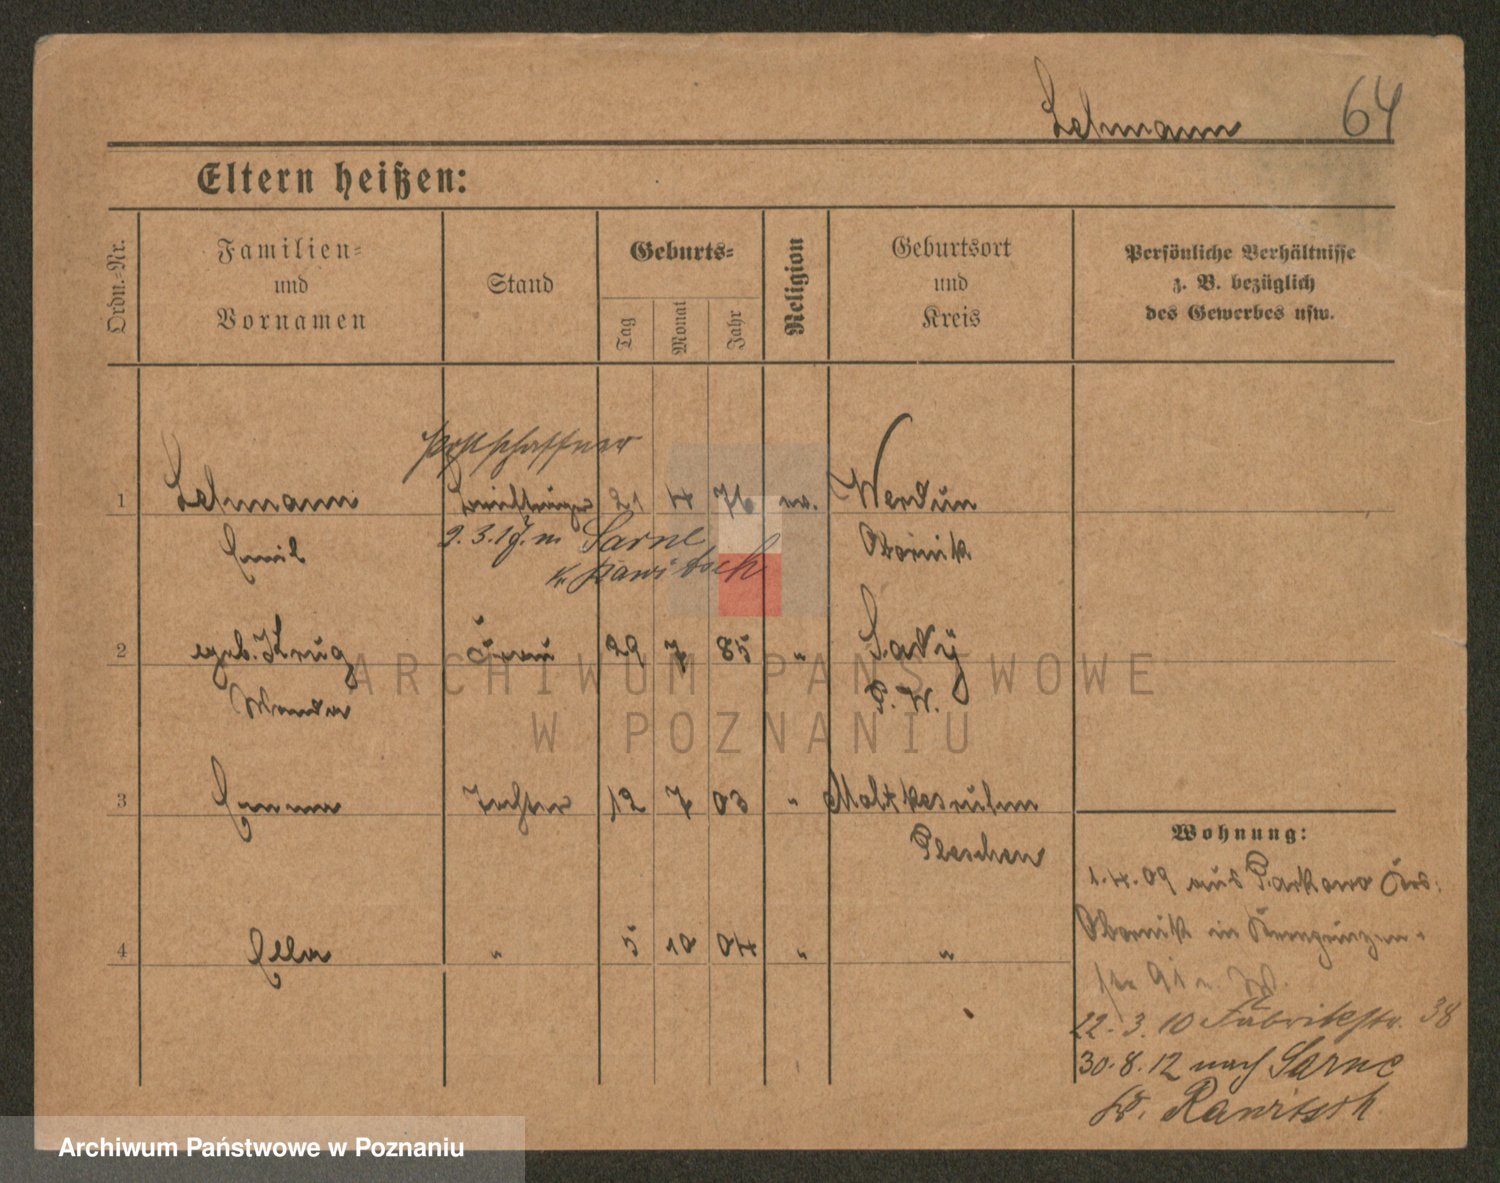 Lehmann 64
Eltern heißen:
Ordn.-Nr.
Familien- und Vornamen
Stand
Geburts-
Tag
Monat
Jahr
Religion
Geburtsort und Kreis
Persönliche Verhältnisse
z. B. bezüglich
des Gewerbes usw.
Postschaffner
1 Lehmann Briefträger 21 4 76 ev. Werdün
Emil 2.3.17. in Sarne Obornik
Kr. Rawitsch
2 geb. Krug Frau 29 7 85 " Sady
Wanda P. W.
3 Emma Tochter 12 7 03 " Moltkesruhm
Pleschen
4 Ella " 5 10 04 " "
Wohnung:
1.4.09 aus Parkowo Krs:
Obornik in
22.3.10 Fabrikstr. 38
30.8.12 nach Sarne
Kr. Rawitsch
ARCHIWUM PAŃSTWOWE
W POZNANIU
Archiwum Państwowe w Poznaniu